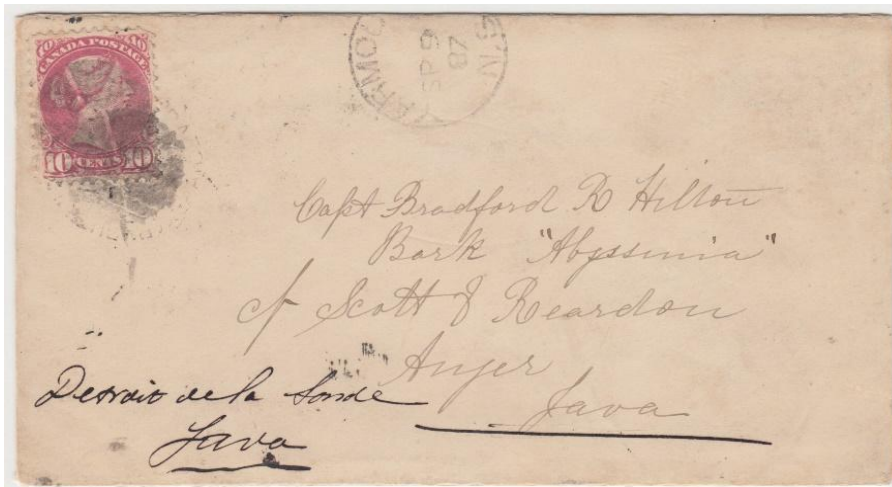 CANADA POSTAGE
10 CENTS 10
ARMOU
N.S.
SP 5
87
Capt Bradford R Hilton
Bark "Abyssinia"
c/ Scott & Reardon
Anjer
Java
Detroit de la Sonde
Java